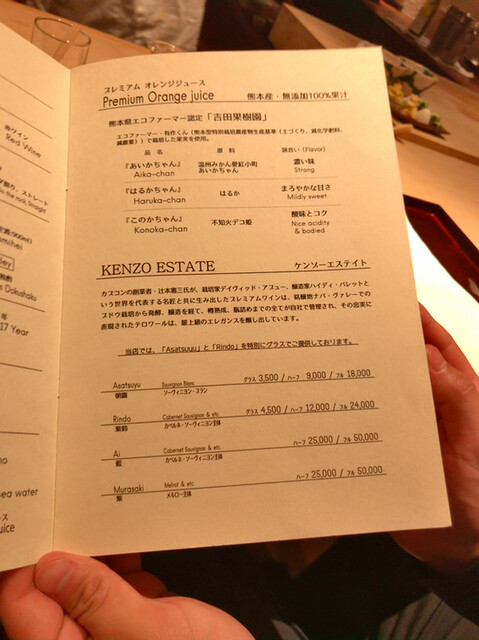 赤ワイン
Red Wine
17 Year
sea water
プレミアム オレンジジュース
Premium Orange juice 熊本産・無添加100%果汁
熊本県エコファーマー認定「吉田果樹園」
エコファーマー・有作くん（熊本型特別栽培農産物生産基準（土づくり、減化学肥料、
減農薬））で栽培した果実を使用。
品 名 原 料 味合い (Flavor)
『あいかちゃん』 温州みかん愛紅小町 濃い味
Aika-chan あいかちゃん Strong
『はるかちゃん』 はるか まろやかな甘さ
Haruka-chan Mildly sweet
『このかちゃん』 不知火デコ姫 酸味とコク
Konoka-chan Nice acidity
& bodied
KENZO ESTATE ケンゾーエステイト
カプコンの創業者・辻本憲三氏が、栽培家デイヴィッド・アブュー、醸造家ハイディ・バレットと
いう世界を代表する名匠と共に生み出したプレミアムワインは、銘醸地ナパ・ヴァレーでの
ブドウ栽培から発酵、醸造を経て、樽熟成、瓶詰めまでの全てが自社で管理され、その忠実に
表現されたテロワールは、最上級のエレガンスを醸し出しています。
当店では、「Asatsuyu」と「Rindo」を特別にグラスでご提供しております。
Asatsuyu Sauvignon Blanc グラス 3,500 / ハーフ 9,000 / フル 18,000
朝露 ソーヴィニヨン・ブラン
Rindo Cabernet Sauvignon & etc. グラス 4,500 / ハーフ 12,000 / フル 24,000
紫鈴 カベルネ・ソーヴィニヨン主体
Ai Cabernet Sauvignon & etc. ハーフ 25,000 / フル 50,000
藍 カベルネ・ソーヴィニヨン主体
Murasaki Merlot & etc. ハーフ 25,000 / フル 50,000
紫 メルロー主体